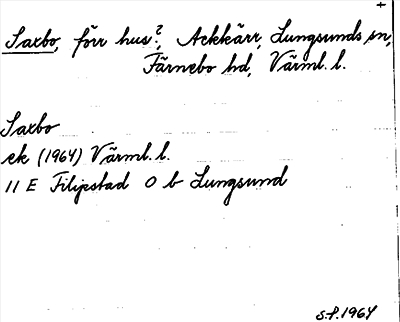 +
Saxbo, förr hus?, Ackkärr, Lungsunds sn,
Färnebo hd, Värml. l.
Saxbo
ek (1964) Värml. l.
11 E Filipstad O b Lungsund
S.P. 1964